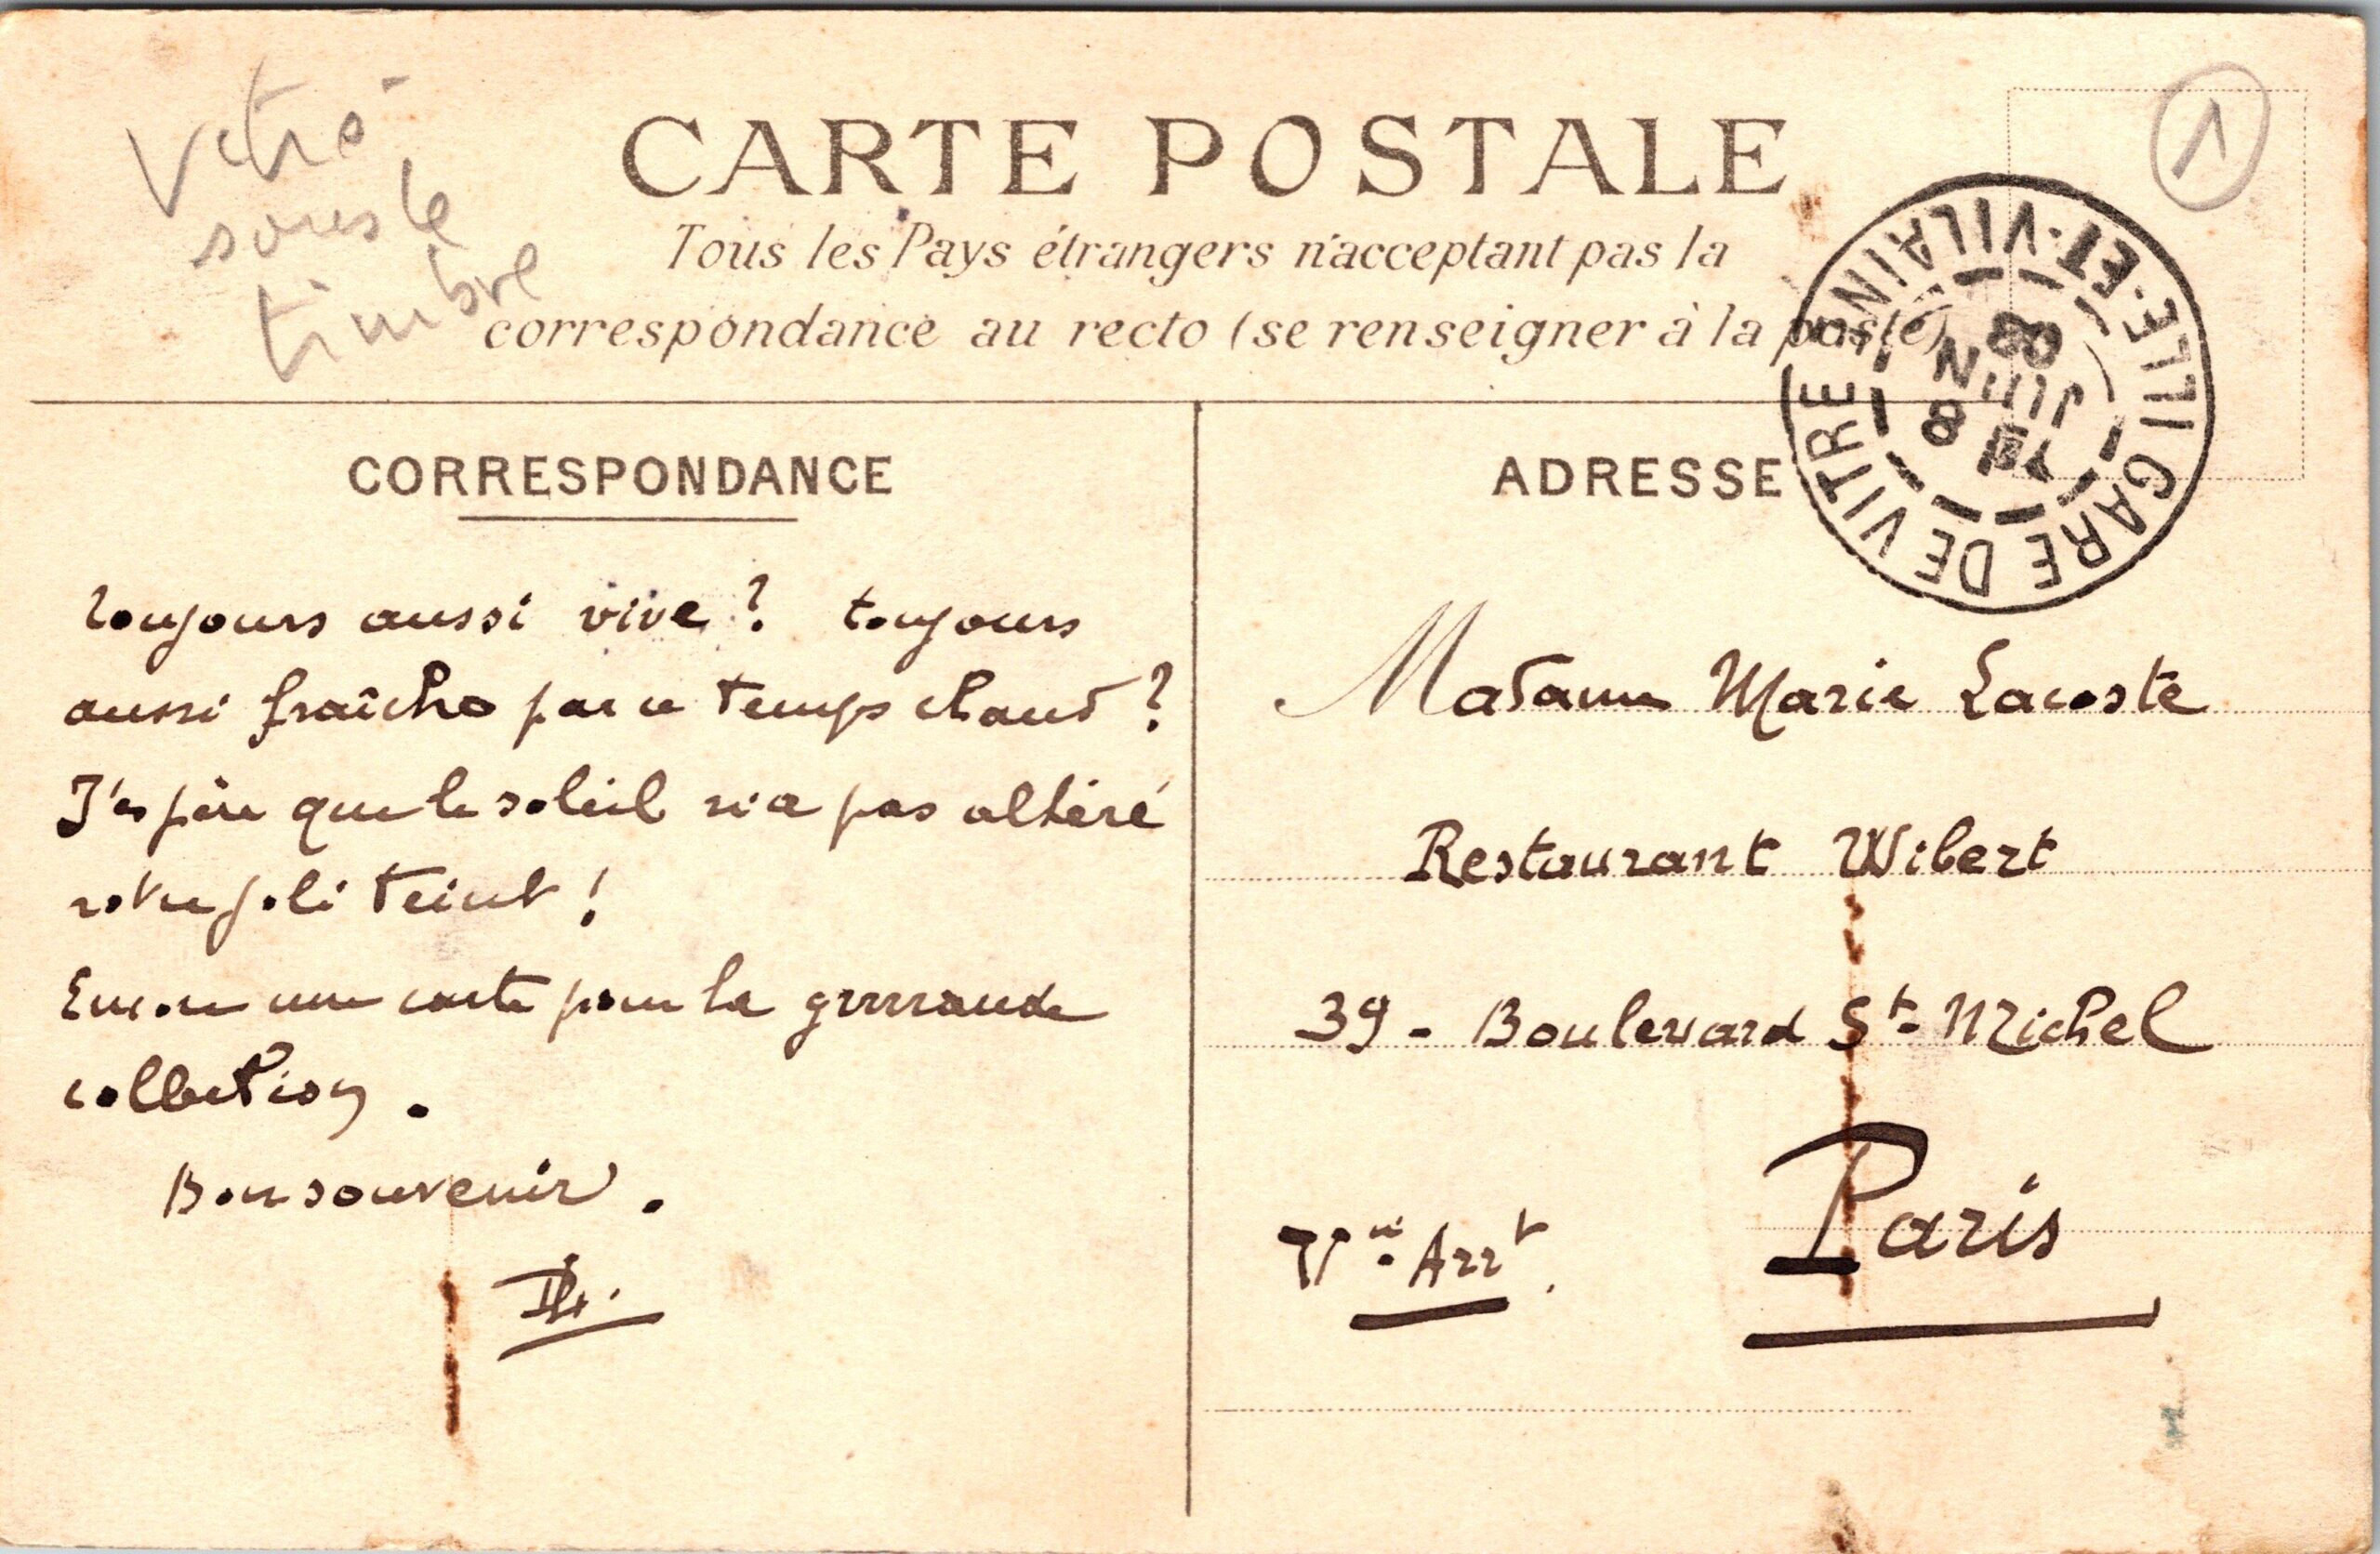 Vitré
sous le
timbre
1
CARTE POSTALE
Tous les Pays étrangers n'acceptant pas la
correspondance au recto (se renseigner à la poste)
GARE DE VITRE ILLE-ET-VILAINE
8 JUIN 08
CORRESPONDANCE
ADRESSE
Toujours aussi vive ? toujours
aussi fraîche par ce temps chaud ?
J'espère que le soleil n'a pas altéré
votre joli teint !
Encore une carte pour la grrrrande
collection.
Bon souvenir.
Madame Marie Lacoste
Restaurant Wibert
39 - Boulevard St- Michel
Paris
Arrt.